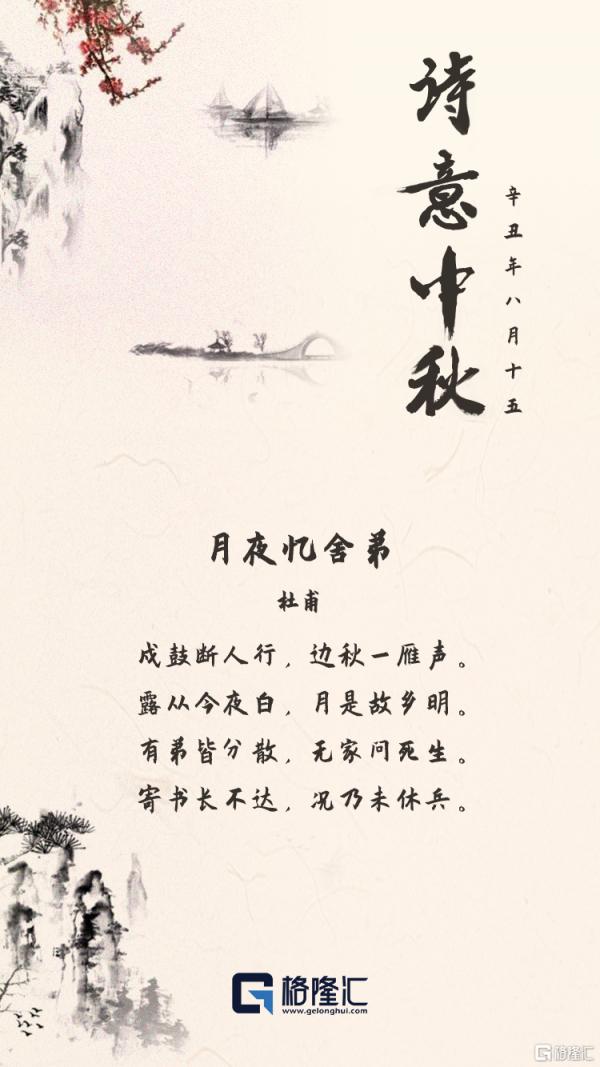 诗意中秋
辛丑年八月十五
月夜忆舍弟
杜甫
戍鼓断人行，边秋一雁声。
露从今夜白，月是故乡明。
有弟皆分散，无家问死生。
寄书长不达，况乃未休兵。
格隆汇
www.gelonghui.com
格隆汇